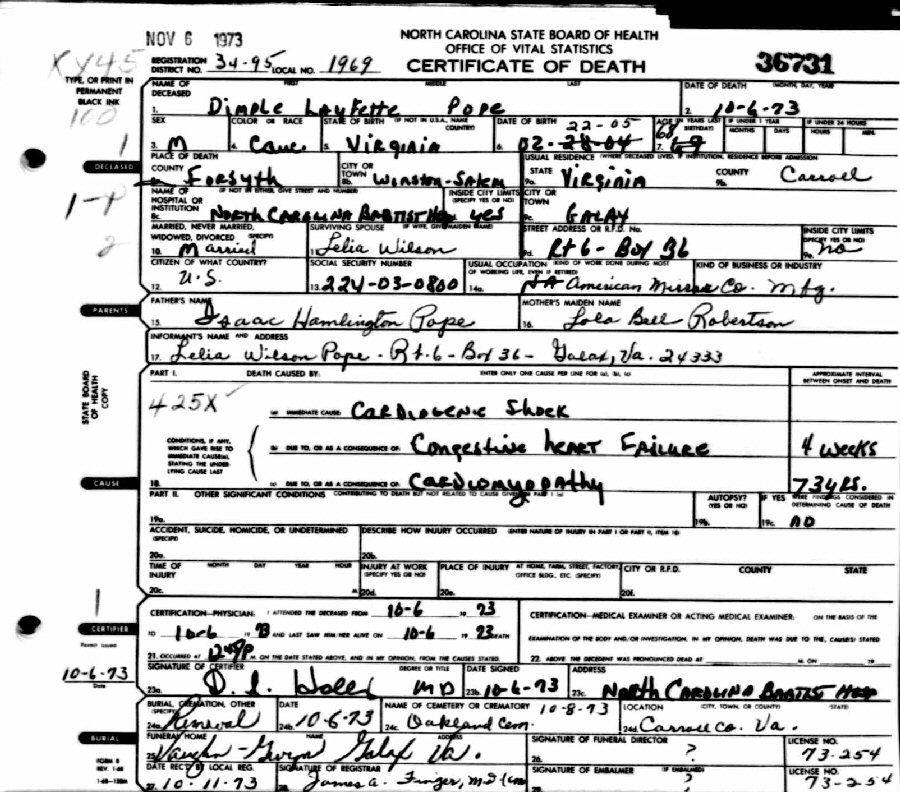 NOV 6 1973
NORTH CAROLINA STATE BOARD OF HEALTH
OFFICE OF VITAL STATISTICS
CERTIFICATE OF DEATH
36731
REGISTRATION DISTRICT NO. 34-95 LOCAL NO. 1969
TYPE, OR PRINT IN PERMANENT BLACK INK
100
NAME OF DECEASED FIRST MIDDLE LAST
1. Dimple Laufette Pope
DATE OF DEATH (MONTH, DAY, YEAR)
2. 10-6-73
SEX
3. M
COLOR OR RACE
4. Cauc
STATE OF BIRTH (IF NOT IN U.S.A., NAME COUNTRY)
5. Virginia
DATE OF BIRTH
22-05
6. 02-28-04
AGE (IN YEARS LAST BIRTHDAY)
68
7. 69
IF UNDER 1 YEAR
MONTHS DAYS
IF UNDER 24 HOURS
HOURS MIN.
DECEASED
PLACE OF DEATH
COUNTY
Forsyth
CITY OR TOWN
8b. Winston-Salem
USUAL RESIDENCE (WHERE DECEASED LIVED, IF INSTITUTION, RESIDENCE BEFORE ADMISSION)
STATE
9a. Virginia
COUNTY
9b. Carroll
1-P
NAME OF HOSPITAL OR INSTITUTION (IF NOT IN EITHER, GIVE STREET AND NUMBER)
8c. North Carolina Baptist Hosp
INSIDE CITY LIMITS (SPECIFY YES OR NO)
yes
CITY OR TOWN
9c. GALAX
MARRIED, NEVER MARRIED, WIDOWED, DIVORCED (SPECIFY)
10. Married
SURVIVING SPOUSE (IF WIFE, GIVE MAIDEN NAME)
11. Lelia Wilson
STREET ADDRESS OR R.F.D. No.
9d. Rt 6 - Box 36
INSIDE CITY LIMITS (SPECIFY YES OR NO)
9e. no
2
CITIZEN OF WHAT COUNTRY?
12. U.S.
SOCIAL SECURITY NUMBER
13. 224-03-0800
USUAL OCCUPATION (KIND OF WORK DONE DURING MOST OF WORKING LIFE, EVEN IF RETIRED)
14a. American Mirror Co.
KIND OF BUSINESS OR INDUSTRY
Mfg.
PARENTS
FATHER'S NAME
15. Isaac Hamlington Pope
MOTHER'S MAIDEN NAME
16. Lola Bell Robertson
INFORMANT'S NAME AND ADDRESS
17. Lelia Wilson Pope - Rt-6-Box 36 - Galax, Va. 24333
STATE BOARD OF HEALTH COPY
PART I. DEATH CAUSED BY: ENTER ONLY ONE CAUSE PER LINE FOR (a), (b), (c)
APPROXIMATE INTERVAL BETWEEN ONSET AND DEATH
425X
(a) IMMEDIATE CAUSE Cardiogenic Shock
CONDITIONS, IF ANY, WHICH GAVE RISE TO IMMEDIATE CAUSE(S), STATING THE UNDERLYING CAUSE LAST
(b) DUE TO, OR AS A CONSEQUENCE OF: Congestive heart Failure 4 weeks
CAUSE
18. (c) DUE TO, OR AS A CONSEQUENCE OF: Cardiomyopathy
PART II. OTHER SIGNIFICANT CONDITIONS CONTRIBUTING TO DEATH BUT NOT RELATED TO CAUSE GIVEN IN PART I (a)
19a.
AUTOPSY? (YES OR NO)
19b.
IF YES WERE FINDINGS CONSIDERED IN DETERMINING CAUSE OF DEATH
19c. NO
ACCIDENT, SUICIDE, HOMICIDE, OR UNDETERMINED (SPECIFY)
20a.
DESCRIBE HOW INJURY OCCURRED (ENTER NATURE OF INJURY IN PART I OR PART II, ITEM 18)
20b.
TIME OF INJURY MONTH DAY YEAR HOUR
20c. M.
INJURY AT WORK (SPECIFY YES OR NO)
20d.
PLACE OF INJURY AT HOME, FARM, STREET, FACTORY, OFFICE BLDG., ETC. (SPECIFY)
20e.
CITY OR R.F.D. COUNTY STATE
20f.
1
CERTIFIER
CERTIFICATION—PHYSICIAN: I ATTENDED THE DECEASED FROM 10-6 19 73
TO 10-6 19 73 AND LAST SAW HIM/HER ALIVE ON 10-6 19 73 DEATH
21. OCCURRED AT M. ON THE DATE STATED ABOVE, AND IN MY OPINION, FROM THE CAUSES STATED.
CERTIFICATION—MEDICAL EXAMINER OR ACTING MEDICAL EXAMINER: ON THE BASIS OF THE
EXAMINATION OF THE BODY AND/OR INVESTIGATION, IN MY OPINION, DEATH WAS DUE TO THE, CAUSE(S) STATED
22. ABOVE. THE DECEDENT WAS PRONOUNCED DEAD AT M. ON 19
Permit Issued
10-6-73
Date
SIGNATURE OF CERTIFIER DEGREE OR TITLE
23a. D. L. MD
DATE SIGNED
23b. 10-6-73
ADDRESS
23c. North Carolina Baptist Hosp
BURIAL, CREMATION, OTHER (SPECIFY)
24a. Removal
DATE
24b. 10-6-73
NAME OF CEMETERY OR CREMATORY 10-8-73
24c. Oakland Cem.
LOCATION (CITY, TOWN, OR COUNTY) (STATE)
24d. Carroll Co. Va.
BURIAL
FUNERAL HOME NAME ADDRESS
25. Vaughn-Gwyn Galax Va.
SIGNATURE OF FUNERAL DIRECTOR
26. ?
LICENSE NO.
73-254
FORM 8
REV. 1-68
DATE REC'D BY LOCAL REG.
27. 10-11-73
SIGNATURE OF REGISTRAR
28. James A. Finger, M.D.
SIGNATURE OF EMBALMER (IF EMBALMED)
29. ?
LICENSE NO.
73-254